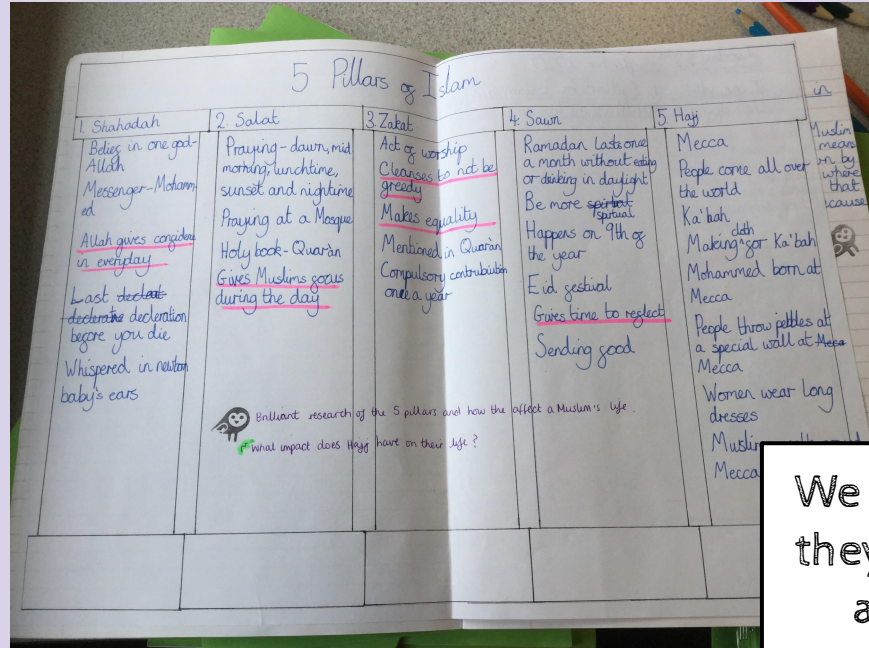 5 Pillars of Islam
1. Shahadah
Belief in one god-
Allah
Messenger-Mohamm
ed
Allah gives confidence
in everyday
Last declrat
declerathe decleration
before you die
Whispered in newborn
baby's ears
2. Salat
Praying-dawn, mid
morning, lunchtime,
sunset and nightime
Praying at a Mosque
Holy book-Quar'an
Gives Muslims focus
during the day
3. Zakat
Act of worship
Cleanses to not be
greedy
Makes equality
Mentioned in Quar'an
Compulsory contrubution
once a year
4. Sawn
Ramadan lasts once
a month without eating
or drinking in daylight
Be more spirtat
spiritual
Happens on 9th of
the year
Eid festival
Gives time to reflect
Sending food
5. Hajj
Mecca
People come all over
the world
Ka'bah
Making cloth for Ka'bah
Mohammed born at
Mecca
People throw pebbles at
a special wall at Meca
Mecca
Women wear long
dresses
Muslim
Mecca
Brilliant research of the 5 pillars and how the affect a Muslim's life.
What impact does Hajj have on their life?
in
Muslim
means
on by
where
that
ecause
We
they
a